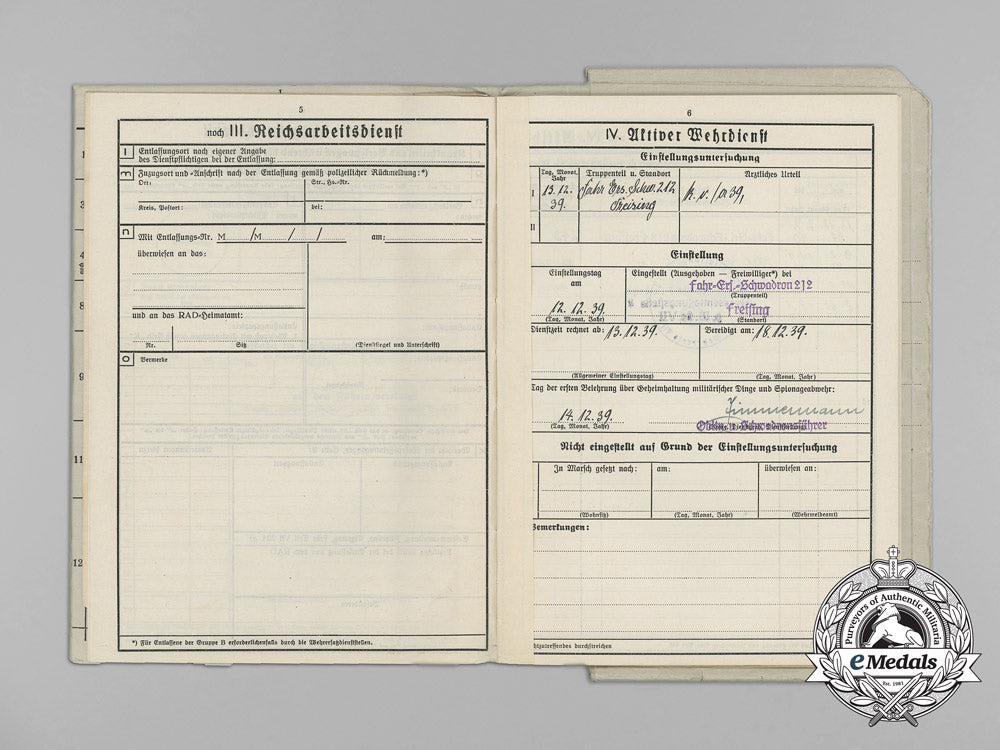 5
noch III. Reichsarbeitsdienst
l Entlassungsort nach eigener Angabe
des Dienstpflichtigen bei der Entlassung:
m Zuzugsort und -Anschrift nach der Entlassung gemäß polizeilicher Rückmeldung:*)
Ort: Str., Hs.-Nr.
Kreis, Postort: bei:
n Mit Entlassungs-Nr. M /M / / am:
überwiesen an das:
und an das RAD-Heimatamt:
Nr. Sitz (Dienstsiegel und Unterschrift)
o Bemerke
*) Für Entlassene der Gruppe B erforderlichenfalls durch die Wehrersatzdienststellen.
6
IV. Aktiver Wehrdienst
Einstellungsuntersuchung
Tag, Monat, Jahr Truppenteil u. Standort Ärztliches Urteil
I 13.12. Fahr Ers. Schw. 212 k.v./a 39,
39. Freising
II
Einstellung
Einstellungstag Eingestellt (Ausgehoben — Freiwilliger*) bei
am Fahr-Ers.-Schwadron 212
(Truppenteil)
12.12.39. Freising
(Tag, Monat, Jahr) (Standort)
Dienstzeit rechnet ab: 13.12.39. Vereidigt am: 18.12.39.
(Allgemeiner Einstellungstag) (Tag, Monat, Jahr)
Tag der ersten Belehrung über Geheimhaltung militärischer Dinge und Spionageabwehr:
14.12.39. Zimmermann
(Tag, Monat, Jahr) Schwadronsführer
Nicht eingestellt auf Grund der Einstellungsuntersuchung
In Marsch gesetzt nach: am: überwiesen an:
(Wohnsitz) (Tag, Monat, Jahr) (Wehrmeldeamt)
Bemerkungen:
htzutreffendes durchstreichen
3
4
8
9
11
12
Purveyors of Authentic Militaria
eMedals
Est. 1981